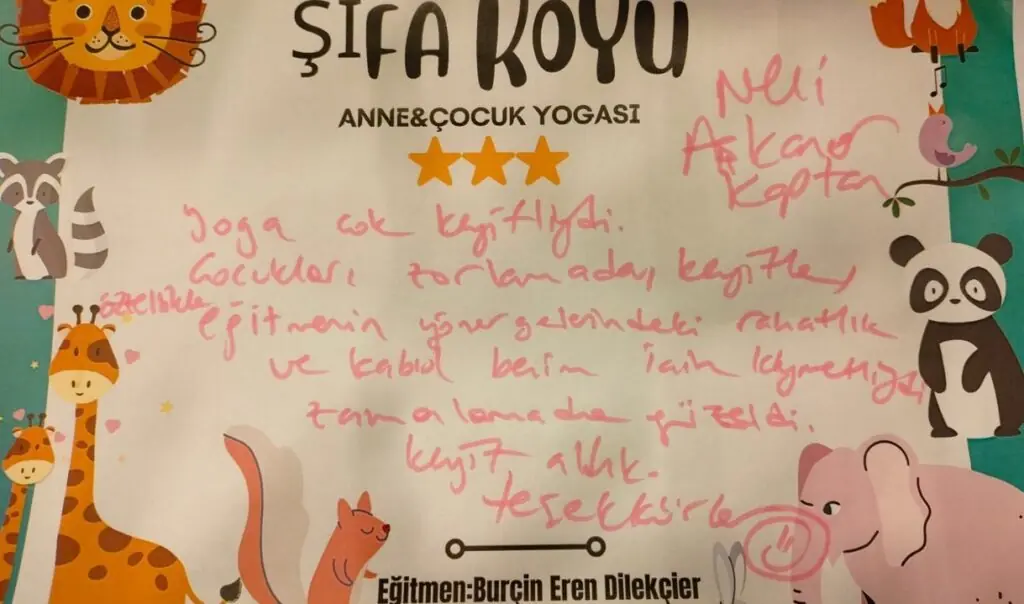 ŞİFA KOYU
ANNE&ÇOCUK YOGASI
Nehi
Aşkaner
Kaptan
Yoga çok keyifliydi.
Çocukları zorlamadan, keyifle,
özellikle eğitmenin yönergelerindeki rahatlık
ve kabul benim için kıymetliydi
zamanlamada güzeldi.
keyif aldık.
teşekkürler
Eğitmen:Burçin Eren Dilekçier